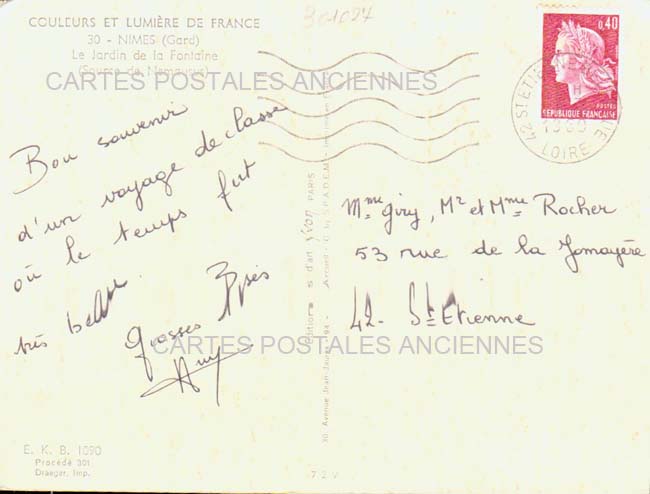 COULEURS ET LUMIÈRE DE FRANCE
30 - NIMES (Gard)
Le Jardin de la Fontaine
(Source de Nemausus)
301024
CARTES POSTALES ANCIENNES
Bon souvenir
d'un voyage de classe
où le temps fut
très beau.
Grosses
0,40
POSTES
REPUBLIQUE FRANÇAISE
42 ST ETIENNE
LOIRE
Mme Giry, Mr et Mme Rocher
53 rue de la Jomayère
42 - St Etienne
CARTES POSTALES ANCIENNES
Editions d'art Yvon PARIS
30 Avenue Jean-Jaurès 94 - Arcueil
E. K. B. 1090
Procédé 301
Draeger, Imp.
72V